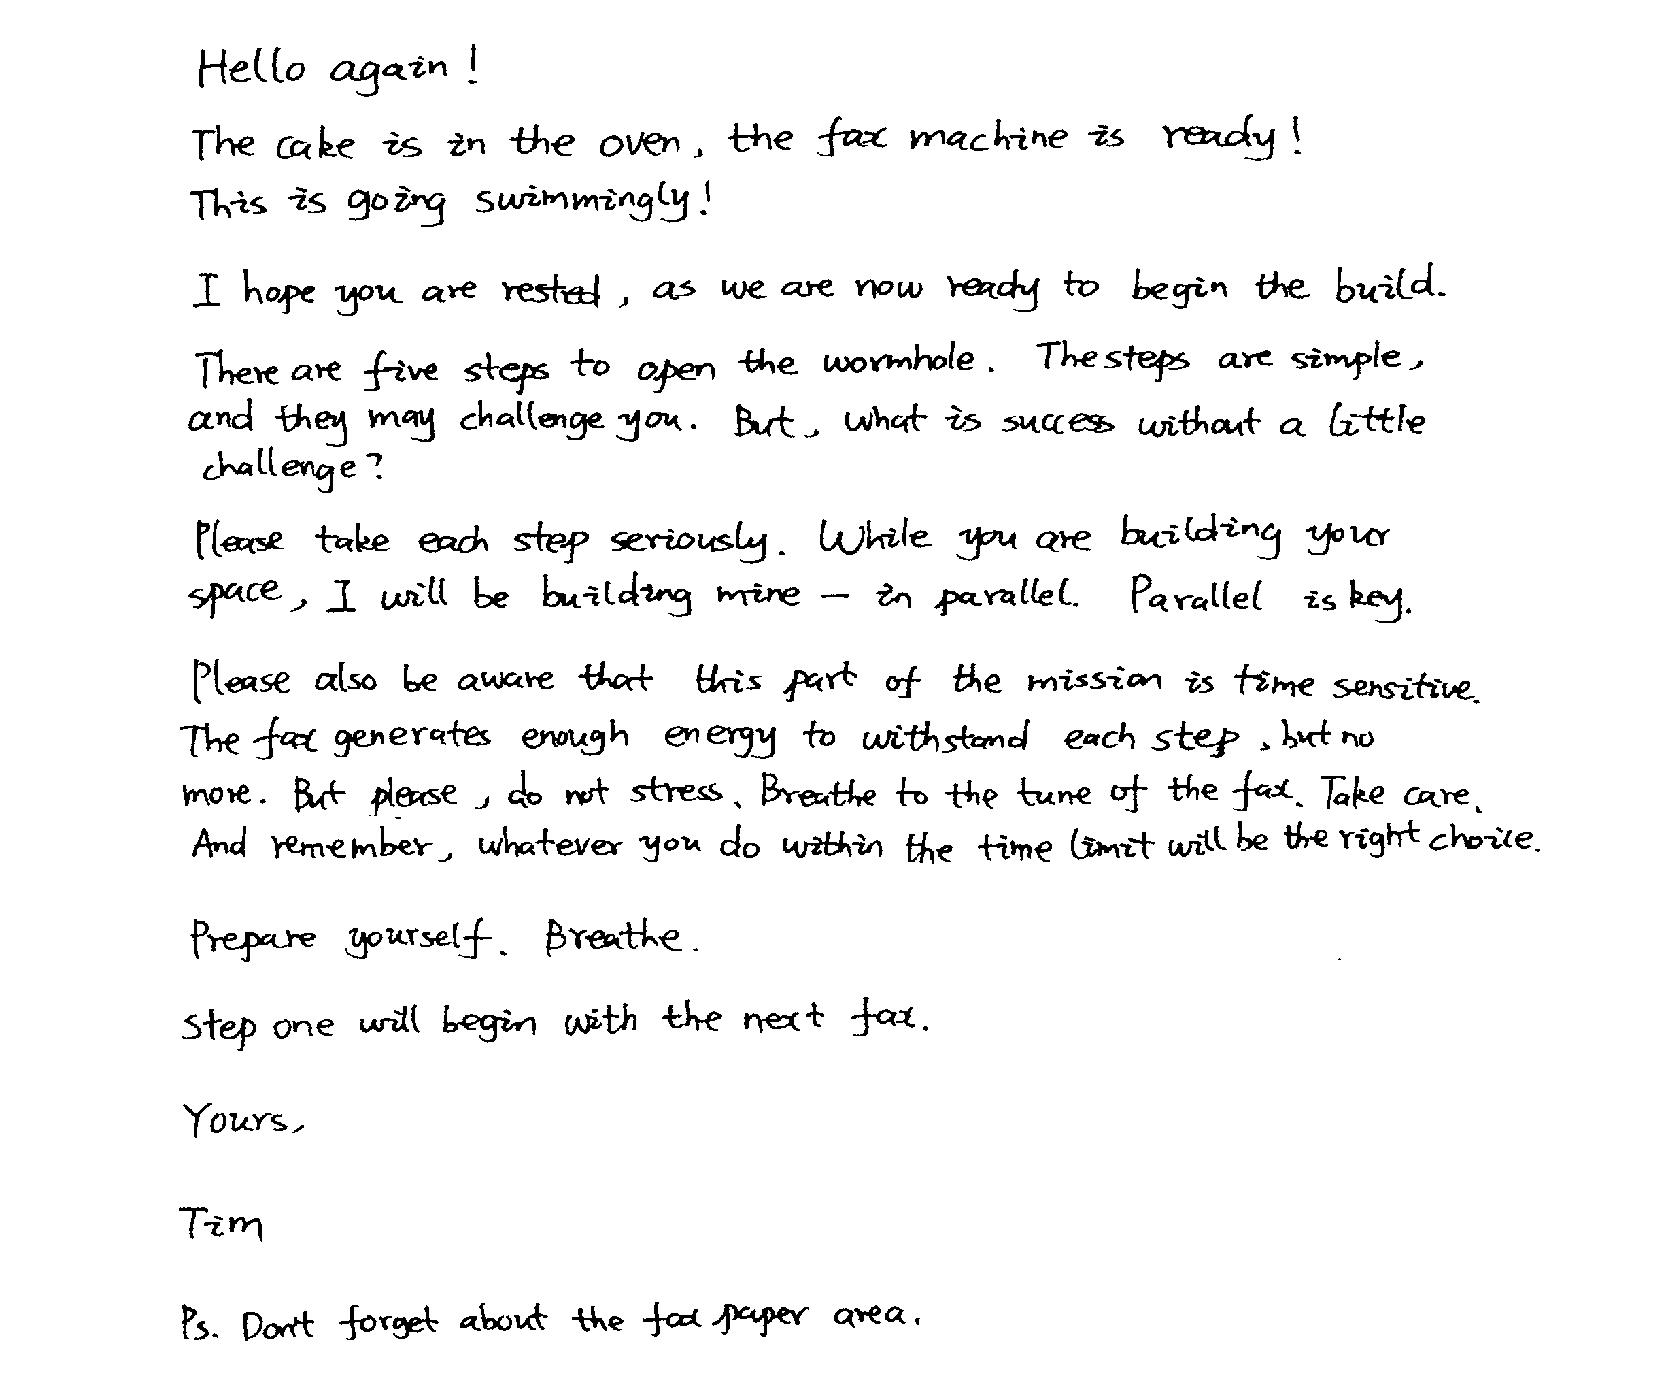 Hello again!
The cake is in the oven, the fax machine is ready!
This is going swimmingly!
I hope you are rested, as we are now ready to begin the build.
There are five steps to open the wormhole. The steps are simple,
and they may challenge you. But, what is success without a little
challenge?
Please take each step seriously. While you are building your
space, I will be building mine – in parallel. Parallel is key.
Please also be aware that this part of the mission is time sensitive.
The fax generates enough energy to withstand each step, but no
more. But please, do not stress. Breathe to the tune of the fax. Take care.
And remember, whatever you do within the time limit will be the right choice.
Prepare yourself. Breathe.
Step one will begin with the next fax.
Yours,
Tim
Ps. Don't forget about the fax paper area.